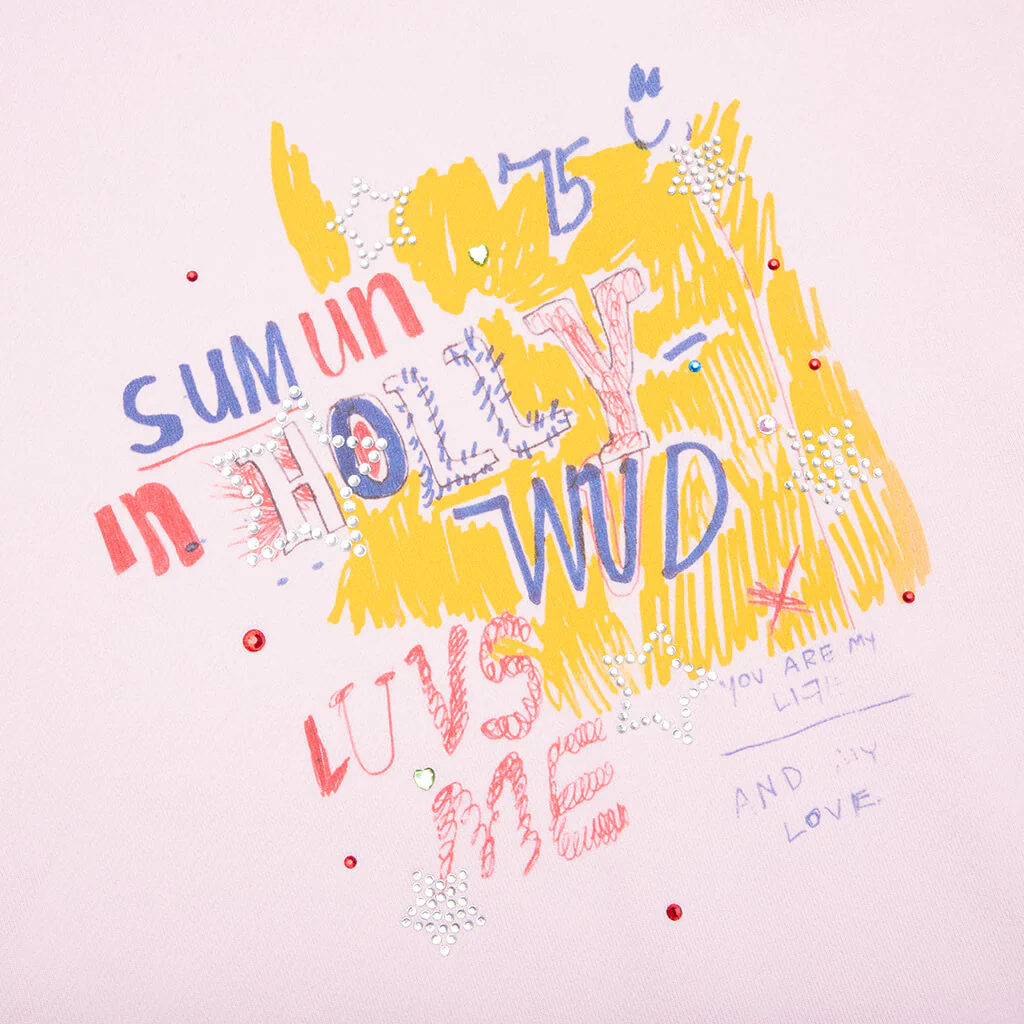 75
SUMUN
IN HOLLY-
WUD
LUVS
ME
YOU ARE MY
LIFE
AND MY
LOVE.